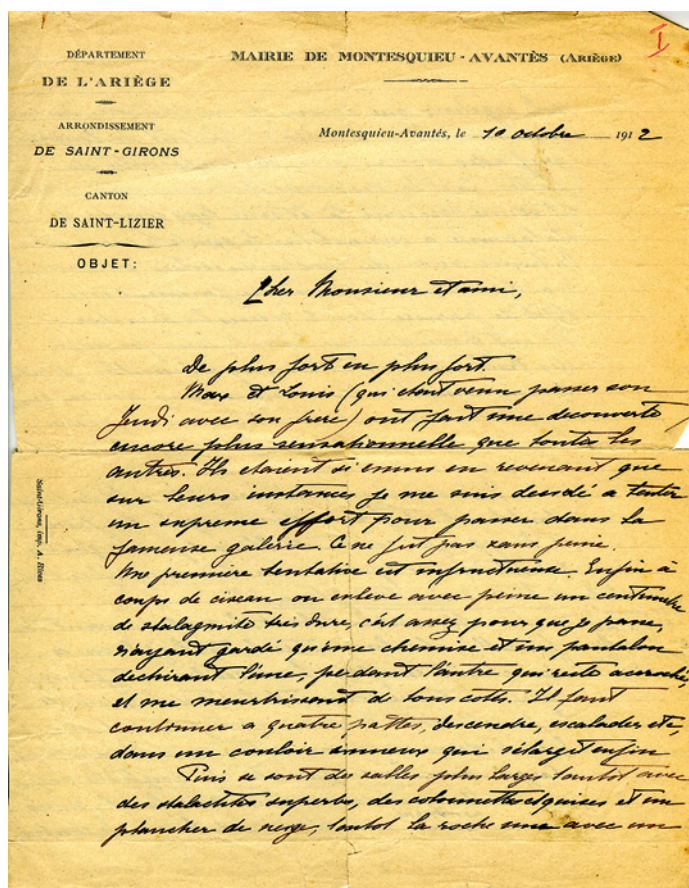 I
DÉPARTEMENT
DE L'ARIÈGE
ARRONDISSEMENT
DE SAINT-GIRONS
CANTON
DE SAINT-LIZIER
OBJET:
MAIRIE DE MONTESQUIEU-AVANTÈS (ARIÈGE)
Montesquieu-Avantés, le 10 octobre 1912
Cher Monsieur et ami,
De plus fort en plus fort.
Max et Louis (qui etait venu passer son
Jeudi avec son frere) ont fait une decouverte
encore plus sensationnelle que toutes les
autres. Ils etaient si emus en revenant que
sur leurs instances je me suis decidé a tenter
un supreme effort pour passer dans la
fameuse galerie. Ce ne fut pas sans peine.
Une premiere tentative est infructueuse. Enfin à
coups de ciseau on enleve avec peine un centimetre
de stalagmite tres dure, c'est assez pour que je passe,
n'ayant gardé qu'une chemise et un pantalon
dechirant l'une, perdant l'autre qui reste accroché,
et me meurtrissant de tous cotés. Il faut
continuer a quatre pattes, descendre, escalader etc,
dans un couloir sinueux qui s'élargit enfin
Puis se sont des salles plus larges tantot avec
des stalactites superbes, des colonnettes exquises et un
plancher de neige, tantot la roche nue avec un
Saint-Girons, imp. A. Rives